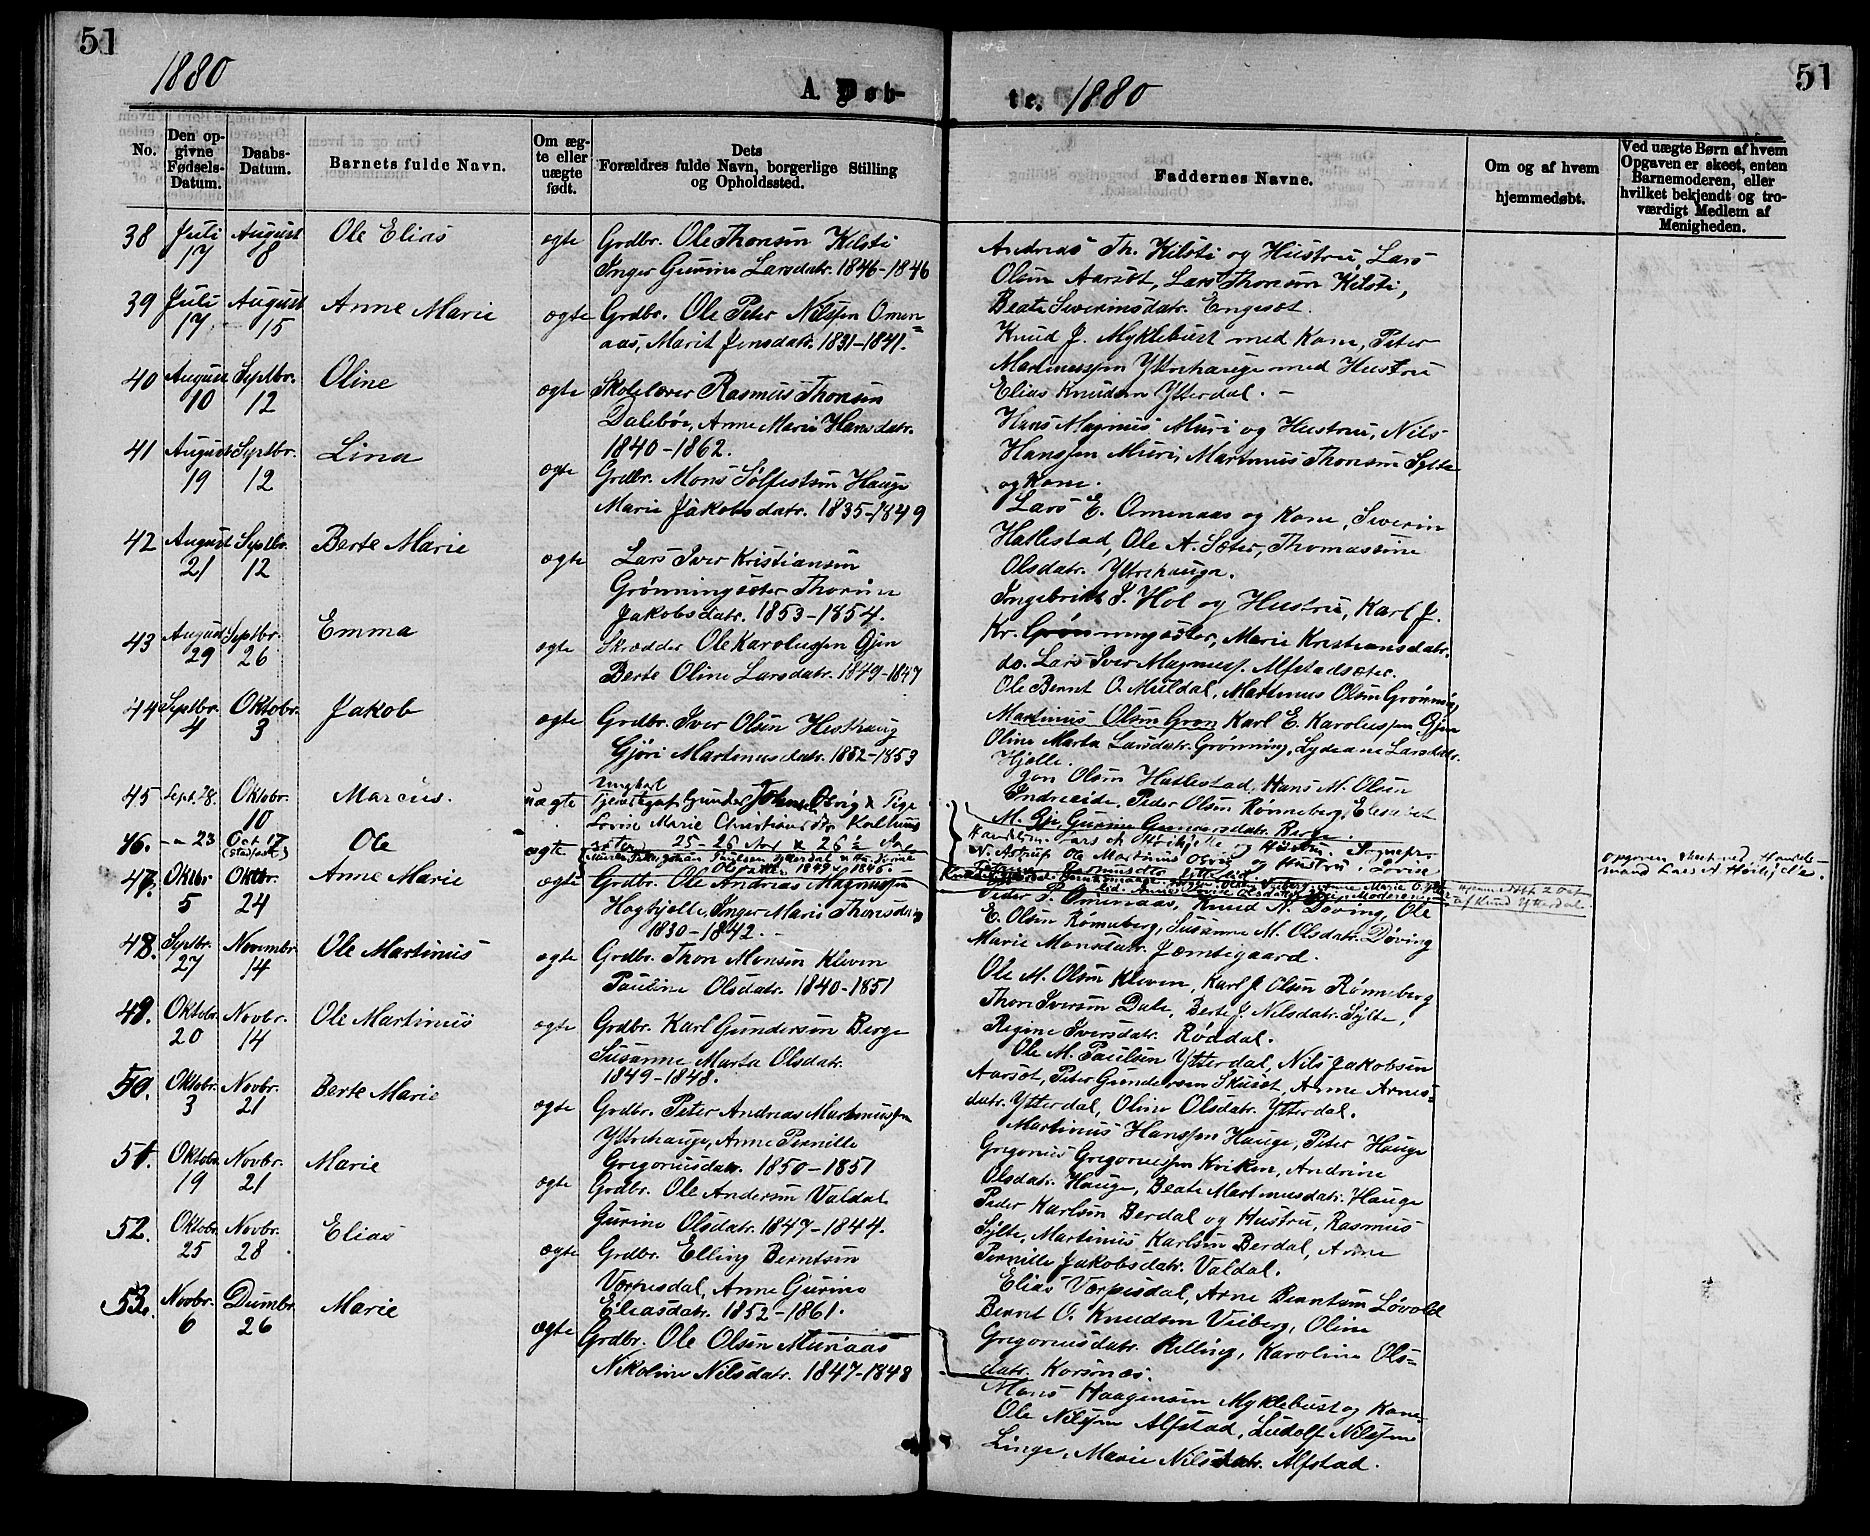 51
1880
A. Døb-
te. 1880
51
No.
Den op-
givne
Fødsels-
Datum.
Daabs-
Datum.
Barnets fulde Navn.
Om æg-
te eller
uægte
født.
Dets
Forældres fulde Navn, borgerlige Stilling
og Opholdssted.
Faddernes Navne.
Om og af hvem
hjemmedøbt.
Ved uægte Børn af hvem
Opgaven er skeet, enten
Barnemoderen, eller
hvilket bekjendt og tro-
værdigt Medlem af
Menigheden.
38 Juli 17 August 8 Ole Elias ægte
Grdbr. Ole Thonsen Kilsti
Inger Gurine Larsdatr. 1846-1846
39 Juli 17 August 15 Anne Marie ægte
Grdbr. Ole Peter Nilssen Omen=
aas, Marit Jensdatr. 1831-1841.
40 August 10 Septbr. 12 Oline ægte
Skolelærer Rasmus Thonsen
Dalebør, Anne Marie Hansdatr.
1840-1862.
41 August 19 Septbr. 12 Lina ægte
Grdbr. Mons Sölfestsøn Hauge
Marie Jakobsdatr. 1835-1849
42 August 21 Septbr. 12 Berte Marie ægte
Lars Iver Kristiansen
Grønningsæter Thorine
Jakobsdatr. 1853-1854.
43 August 29 Septbr. 26 Emma ægte
Skrædder Ole Karolussen Gjen
Berte Oline Larsdatr. 1849-1847
44 Septbr. 4 Oktobr. 3 Jakob ægte
Grdbr. Iver Olsen Hesthaug
Gjøri Martinusdatr. 1852-1853
45 Sept. 28. Oktobr. 10 Marcus. uægte
Ungkarl
Gunder Olsen Pige
Lovise Marie Christiansdtr.
25-26
46. -"- 23 Oct 17 (stadfæst) Ole ægte
Paulsen Ytterdal
1849-1846.
47. Oktbr 5 Oktbr. 24 Anne Marie ægte
Grdbr. Ole Andreas Magnussen
Høgbjelle, Inger Marie Thonsdatr
1830-1842.
48. Septbr. 27 Novembr. 14 Ole Martinus ægte
Grdbr. Thore Monsen Kleven
Pauline Olsdatr. 1840-1851
49. Oktobr. 20 Novbr. 14 Ole Martinus ægte
Grdbr. Karl Gundersen Berge
Susanne Marta Olsdatr.
1849-1848.
50. Oktobr. 3 Novbr. 21 Berte Marie ægte
Grdbr. Peter Andreas Martinussen
Yttrehauge, Anne Pernille
Gregoriusdatr. 1850-1851
51. Oktobr. 19 Novbr. 21 Marie ægte
Grdbr. Ole Andersen Valdal
Gurine Olsdatr. 1847-1844.
52. Oktobr. 25 Novbr. 28 Elias ægte
Grdbr. Elling Berntsen
Værpesdal, Anne Gurine
Eliasdatr. 1852-1861.
53. Novbr. 6 Decmbr. 26 Marie ægte
Grdbr. Ole Olsen Muriaas
Nikoline Nilsdatr. 1847-1848
Andreas Th. Kilsti og Hustru, Lars
Olsen Aarsøt, Lars Thonsen Kilsti,
Beate Severinsdatr. Engesæt.
Knud J. Myklebust med Kone, Peter
Martinussen Yttrehauge med Hustru
Elias Knudsen Ytterdal. -
Hans Magnus Muri og Hustru, Nils
Hanssen Muri, Martinus Thonsen Sylte
og Kone.
Lars E. Omenaas og Kone, Severin
Hatlestad, Ole A. Sæter, Thomassine
Olsdatr. Yttrehauge.
Ingebrikt P. Hol og Hustru, Karl J.
Kr. Grønningsæter, Marie Kristiansdatr.
do. Lars Iver Magnuss. Alfstadsæter.
Ole Bernt O. Muldal, Martinus Olsen Grønning
Martinus Olsen Grøn Karl E. Karolussen Gjen
Oline Marta Larsdatr. Grønning, Lydeane Larsdatr.
Hjelle.
Jon Olsen Hatlestad, Hans M. Olsen
Indreeide, Peder Olsen Rønneberg, Elesabet
M. Gurine Gundersdatr. Berge.
Lars A. Høihjelle og Hustru, Sognepr.
N. Astrup Ole Martinus og Hustru, Lovise
Peder P. Omenaas, Knud N. Døving, Ole
E. Olsen Rønneberg, Susanne M. Olsdatr. Døving
Marie Monsdatr. Jemtegaard.
Ole M. Olsen Kleven, Karl J. Olsen Rønneberg
Thore Iversen Dale, Berte J. Nilsdatr. Sylte,
Regine Iversdatr. Røddal.
Ole M. Paulsen Ytterdal, Nils Jakobsen
Aarsæt, Peter Gundersen Skusæt, Anne Arnes=
datr. Ytterdal, Oline Olsdatr. Ytterdal.
Martinus Hanssen Hauge, Peter Hauge
Gregorius Gregoriussen Kviken, Andrine
Olsdatr. Hauge, Beate Martinusdatr. Hauge
Peder Karlsen Berdal og Hustru, Rasmus
Sylte, Martinus Karlsen Berdal, Anne
Pernille Jakobsdatr. Valdal.
Elias Værpesdal, Arne Berntsen Løvold
Bernt O. Knudsen Viberg, Oline
Gregoriusdatr. Relling, Karoline Ols=
datr. Korsnæs.
Mons Haagensen Myklebust og Kone
Ole Nilssen Alfstad, Ludolf Nilssen
Linge, Marie Nilsdatr. Alfstad.
Hjemmedøbt 2 Oct
af Knud Ytterdal
Opgaven skeet ved Handels-
mand Lars A. Høihjelle.